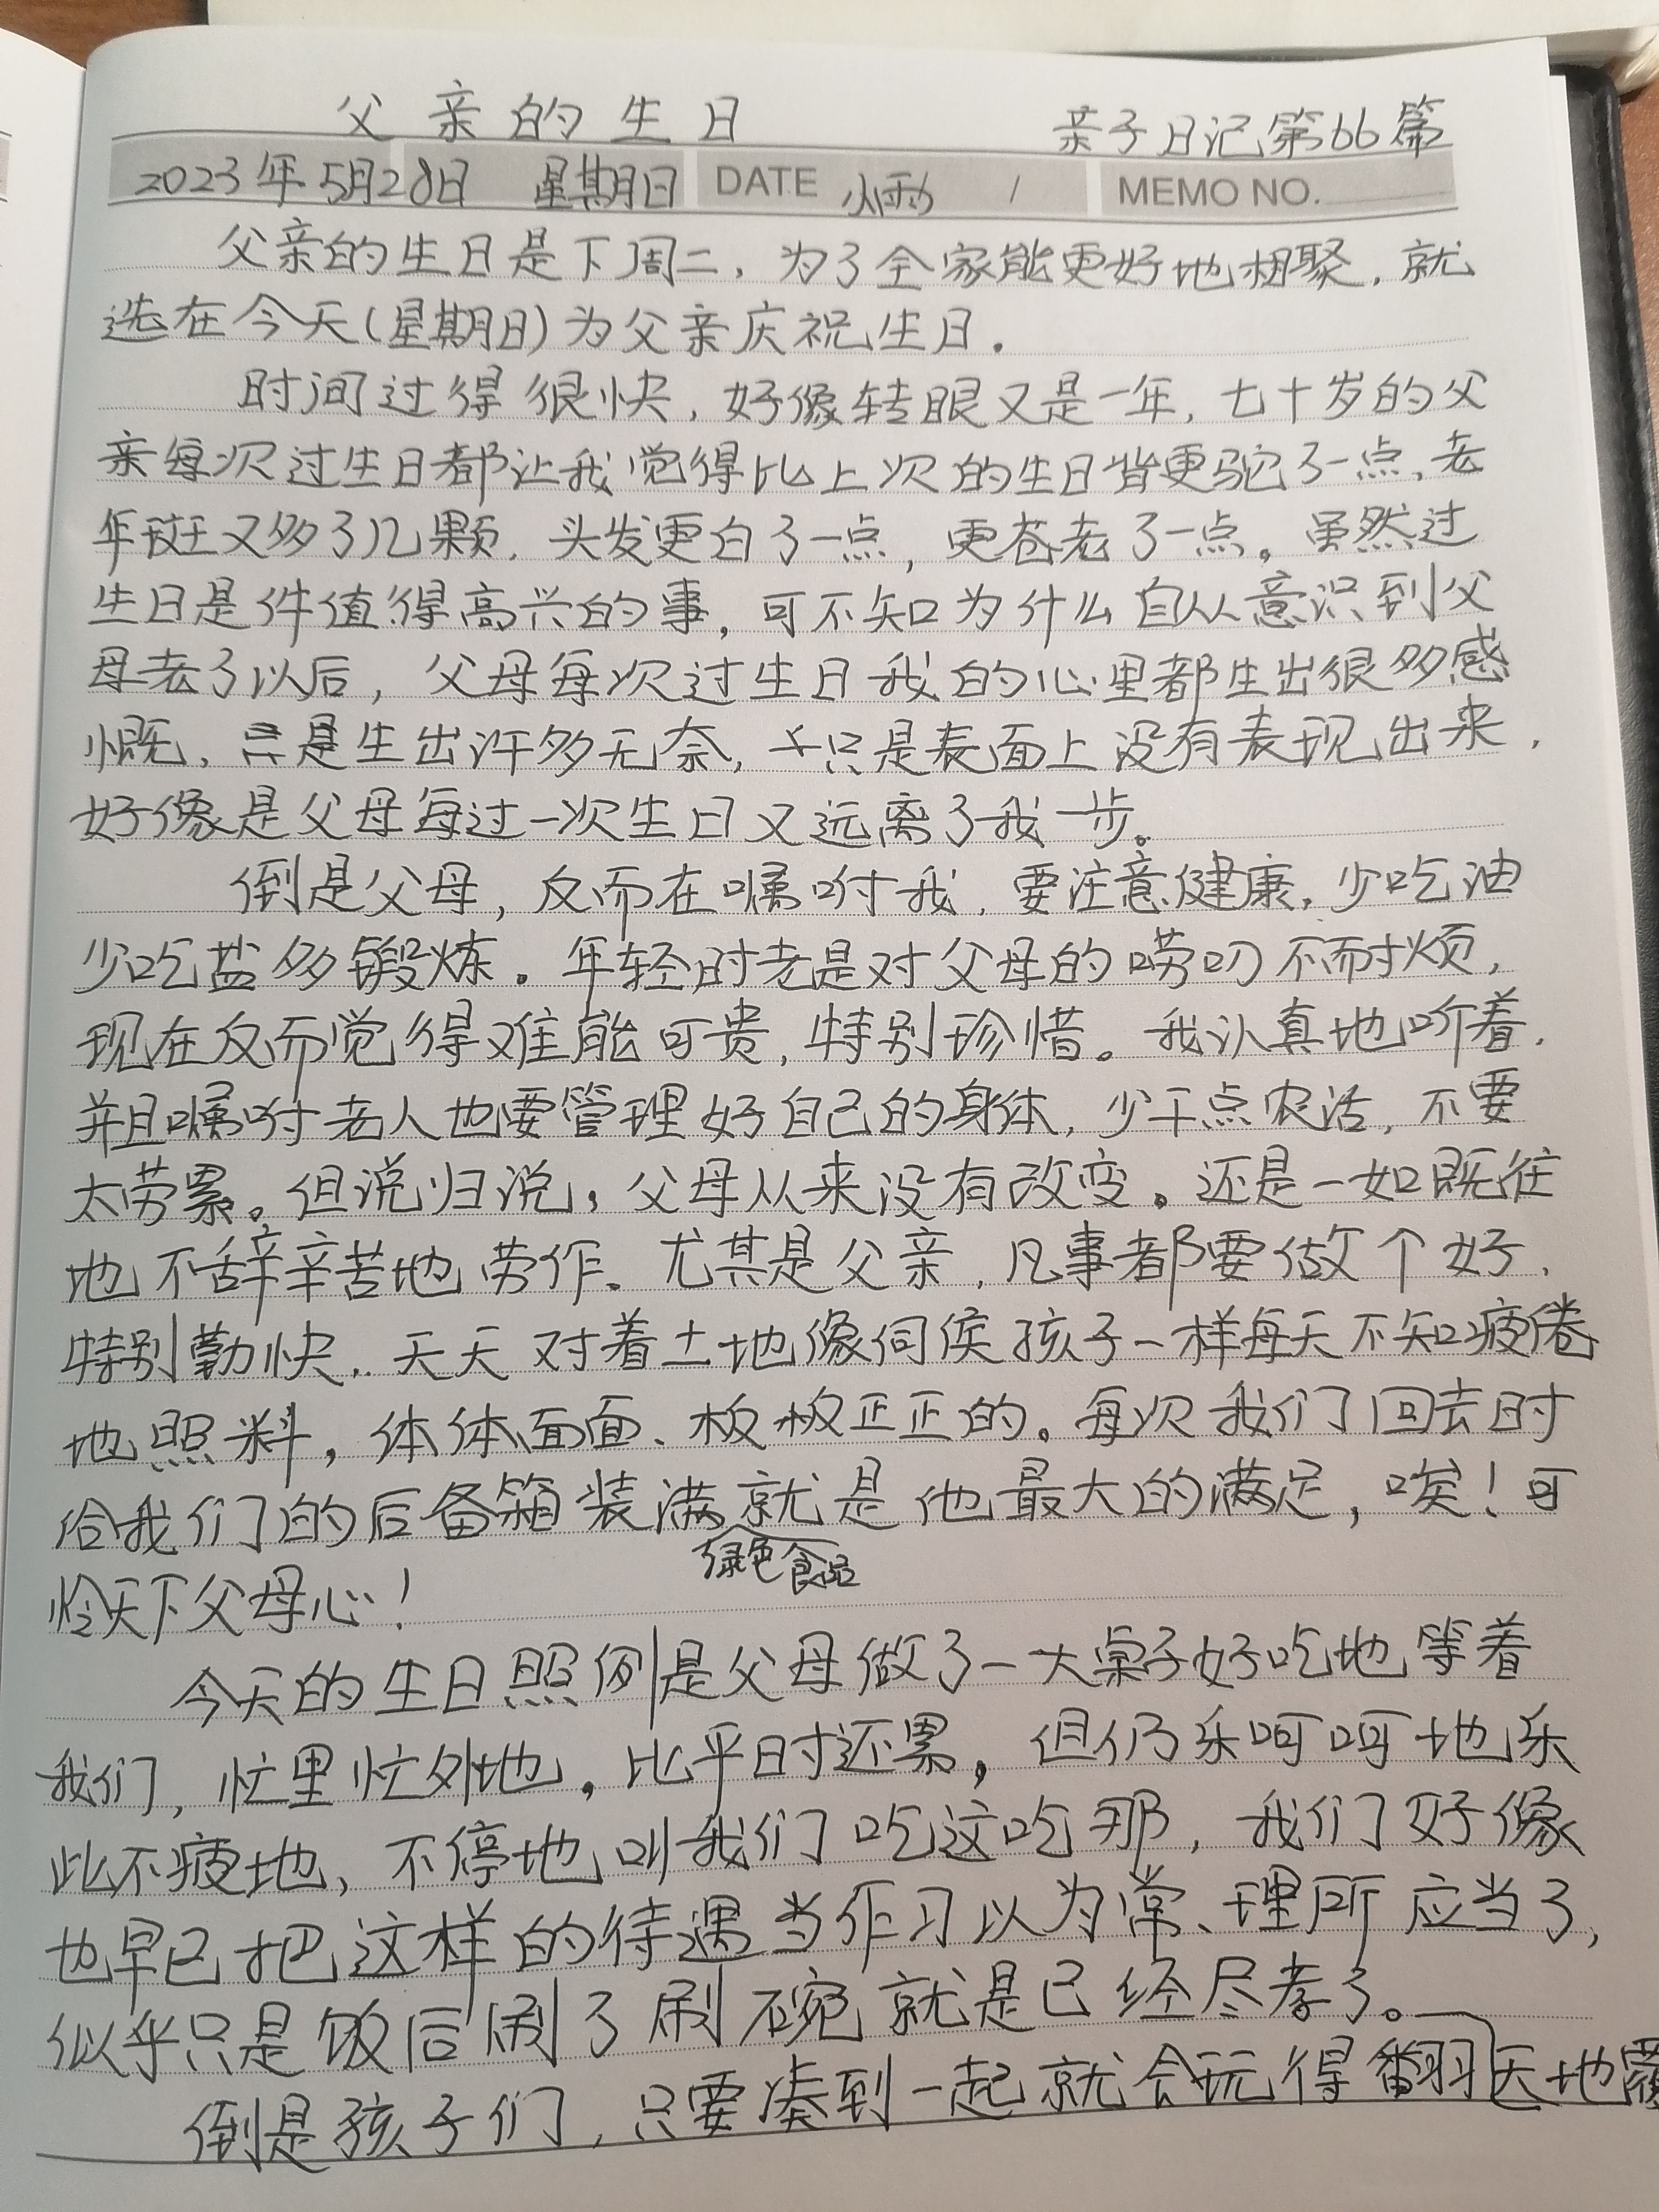 父亲的生日 亲子日记第66篇
2023年5月28日 星期日 DATE 小雨 / MEMO NO.
父亲的生日是下周二,为了全家能更好地相聚,就
选在今天(星期日)为父亲庆祝生日.
时间过得很快,好像转眼又是一年,七十岁的父
亲每次过生日都让我觉得比上次的生日背更驼了一点,老
年斑又多了几颗,头发更白了一点,更苍老了一点。虽然过
生日是件值得高兴的事,可不知为什么自从意识到父
母老了以后,父母每次过生日我的心里都生出很多感
慨,只是生出许多无奈,只是表面上没有表现出来,
好像是父母每过一次生日又远离了我一步。
倒是父母,反而在嘱咐我,要注意健康,少吃油
少吃盐多锻炼。年轻时老是对父母的唠叨不耐烦,
现在反而觉得难能可贵,特别珍惜。我认真地听着,
并且嘱咐老人也要管理好自己的身体,少干点农活,不要
太劳累。但说归说,父母从来没有改变。还是一如既往
地不辞辛苦地劳作。尤其是父亲,凡事都要做个好,
特别勤快,天天对着土地像伺侯孩子一样每天不知疲倦
地照料,体体面面、板板正正的。每次我们回去时
给我们的后备箱装满就是他最大的满足,唉!可
绿色食品
怜天下父母心!
今天的生日照例是父母做了一大桌子好吃地等着
我们,忙里忙外地,比平时还累,但仍乐呵呵地乐
此不疲地,不停地叫我们吃这吃那,我们好像
也早已把这样的待遇当作习以为常、理所应当了,
似乎只是饭后刷了刷碗就是已经尽孝了。
倒是孩子们,只要凑到一起就会玩得翻天地覆